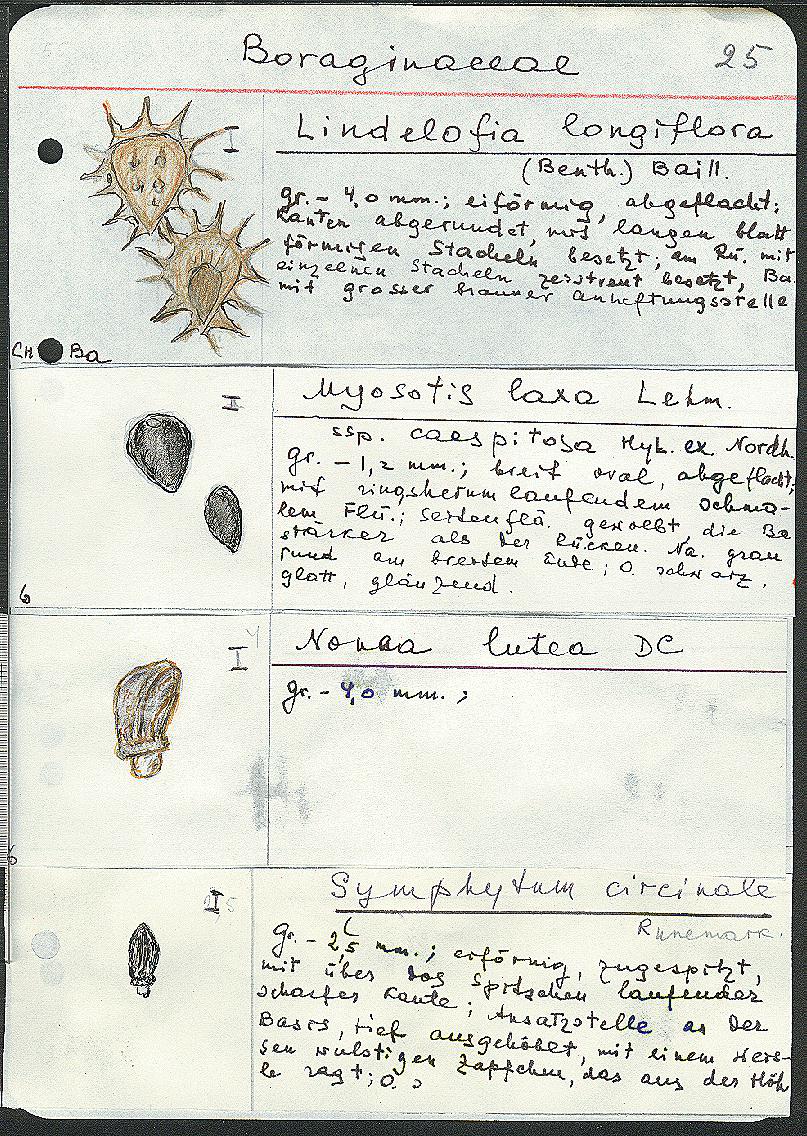 Boraginaceae 25
I
Lindelofia longiflora
(Benth.) Baill.
gr. - 4,0 mm.; eiförmig, abgeflacht;
Kanten abgerundet, mit langen blatt
förmigen Stacheln besetzt; am Rü. mit
einzelnen Stacheln zerstreut besetzt, Ba.
mit grosser brauner Anheftungsstelle
CH Ba
I
Myosotis laxa Lehm.
ssp. caespitosa Hyl. ex. Nordh.
gr. - 1,2 mm.; breit oval, abgeflacht;
mit ringsherum laufendem schma-
lem Flü.; Seitenflä. gewölbt, die Ba
stärker als der Rücken. Na. grau
rund am breitem Ende; O. schwarz,
glatt, glänzend.
6
I
Nonea lutea DC
gr. - 4,0 mm.;
I
Symphytum circinale
Runemark.
gr. - 2,5 mm.; eiförmig, zugespitzt,
mit über das Spitzchen laufender
scharfer Kante; Ansatzstelle an der
Basis, tief ausgehöhlt, mit einem
sen wulstigen Zäpfchen, das aus der Höh
le ragt; O.